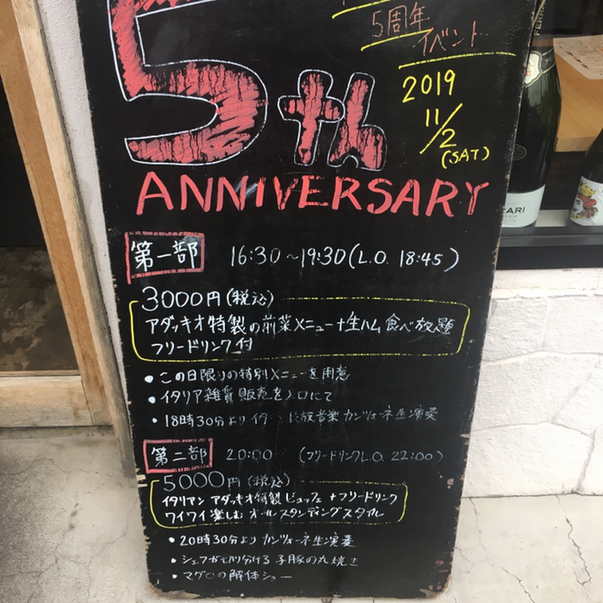 5周年
イベント
2019
11/2
(SAT)
5th
ANNIVERSARY
第一部 16:30～19:30(L.O. 18:45)
3000円(税込)
アダッキオ特製の前菜メニュー+生ハム食べ放題
フリードリンク付
・この日限りの特別メニューを用意
・イタリア雑貨販売を入口にて
・18時30分より カンツォーネ生演奏
第二部 20:00 (フリードリンクL.O. 22:00)
5000円(税込)
イタリアン アダッキオ特製ビュッフェ+フリードリンク
ワイワイ楽しむ オールスタンディングスタイル
・20時30分より カンツォーネ生演奏
・シェフが切り分ける 子豚の丸焼き
・マグロの解体ショー